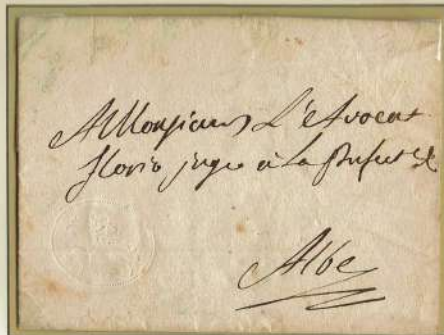 A Monsieur L'Avocat
Florio juge à La Prefect.
Albe